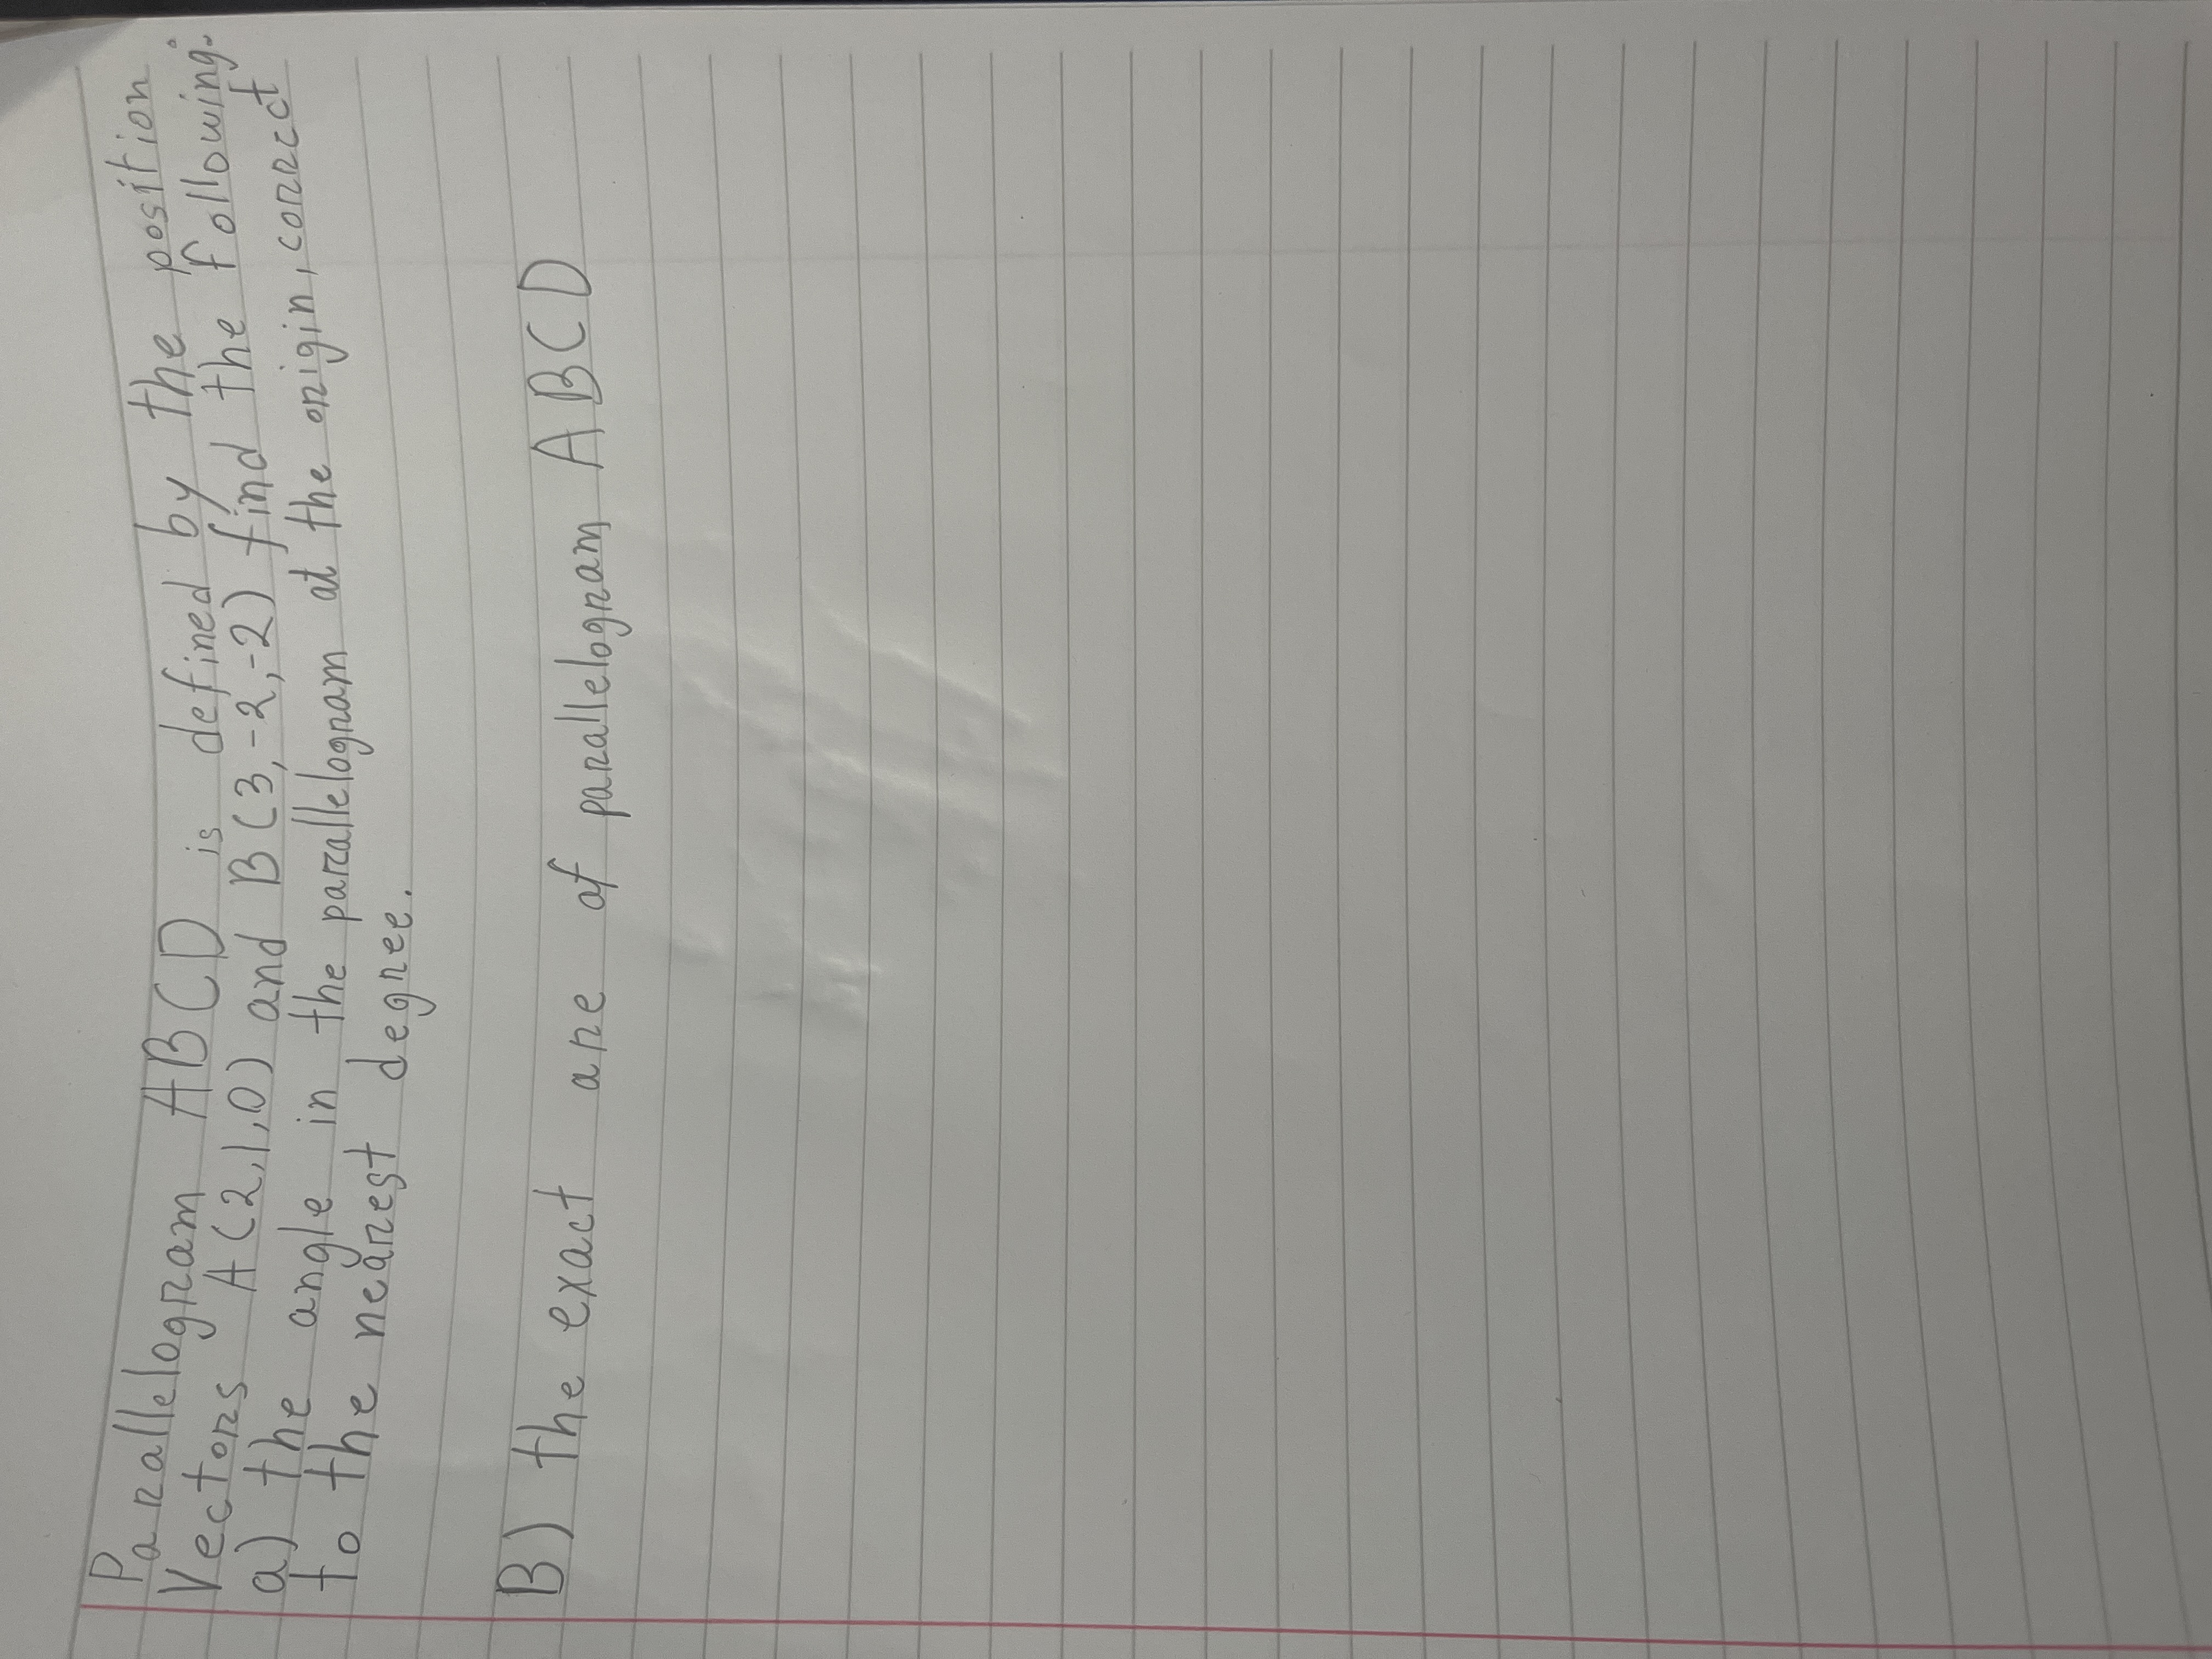 Parallelogram ABCD is defined by the position
Vectors A(2,1,0) and B(3,-2,-2) find the following.
a) the angle in the parallelogram at the origin, correct
to the nearest degree.
B) the exact are of parallelogram ABCD